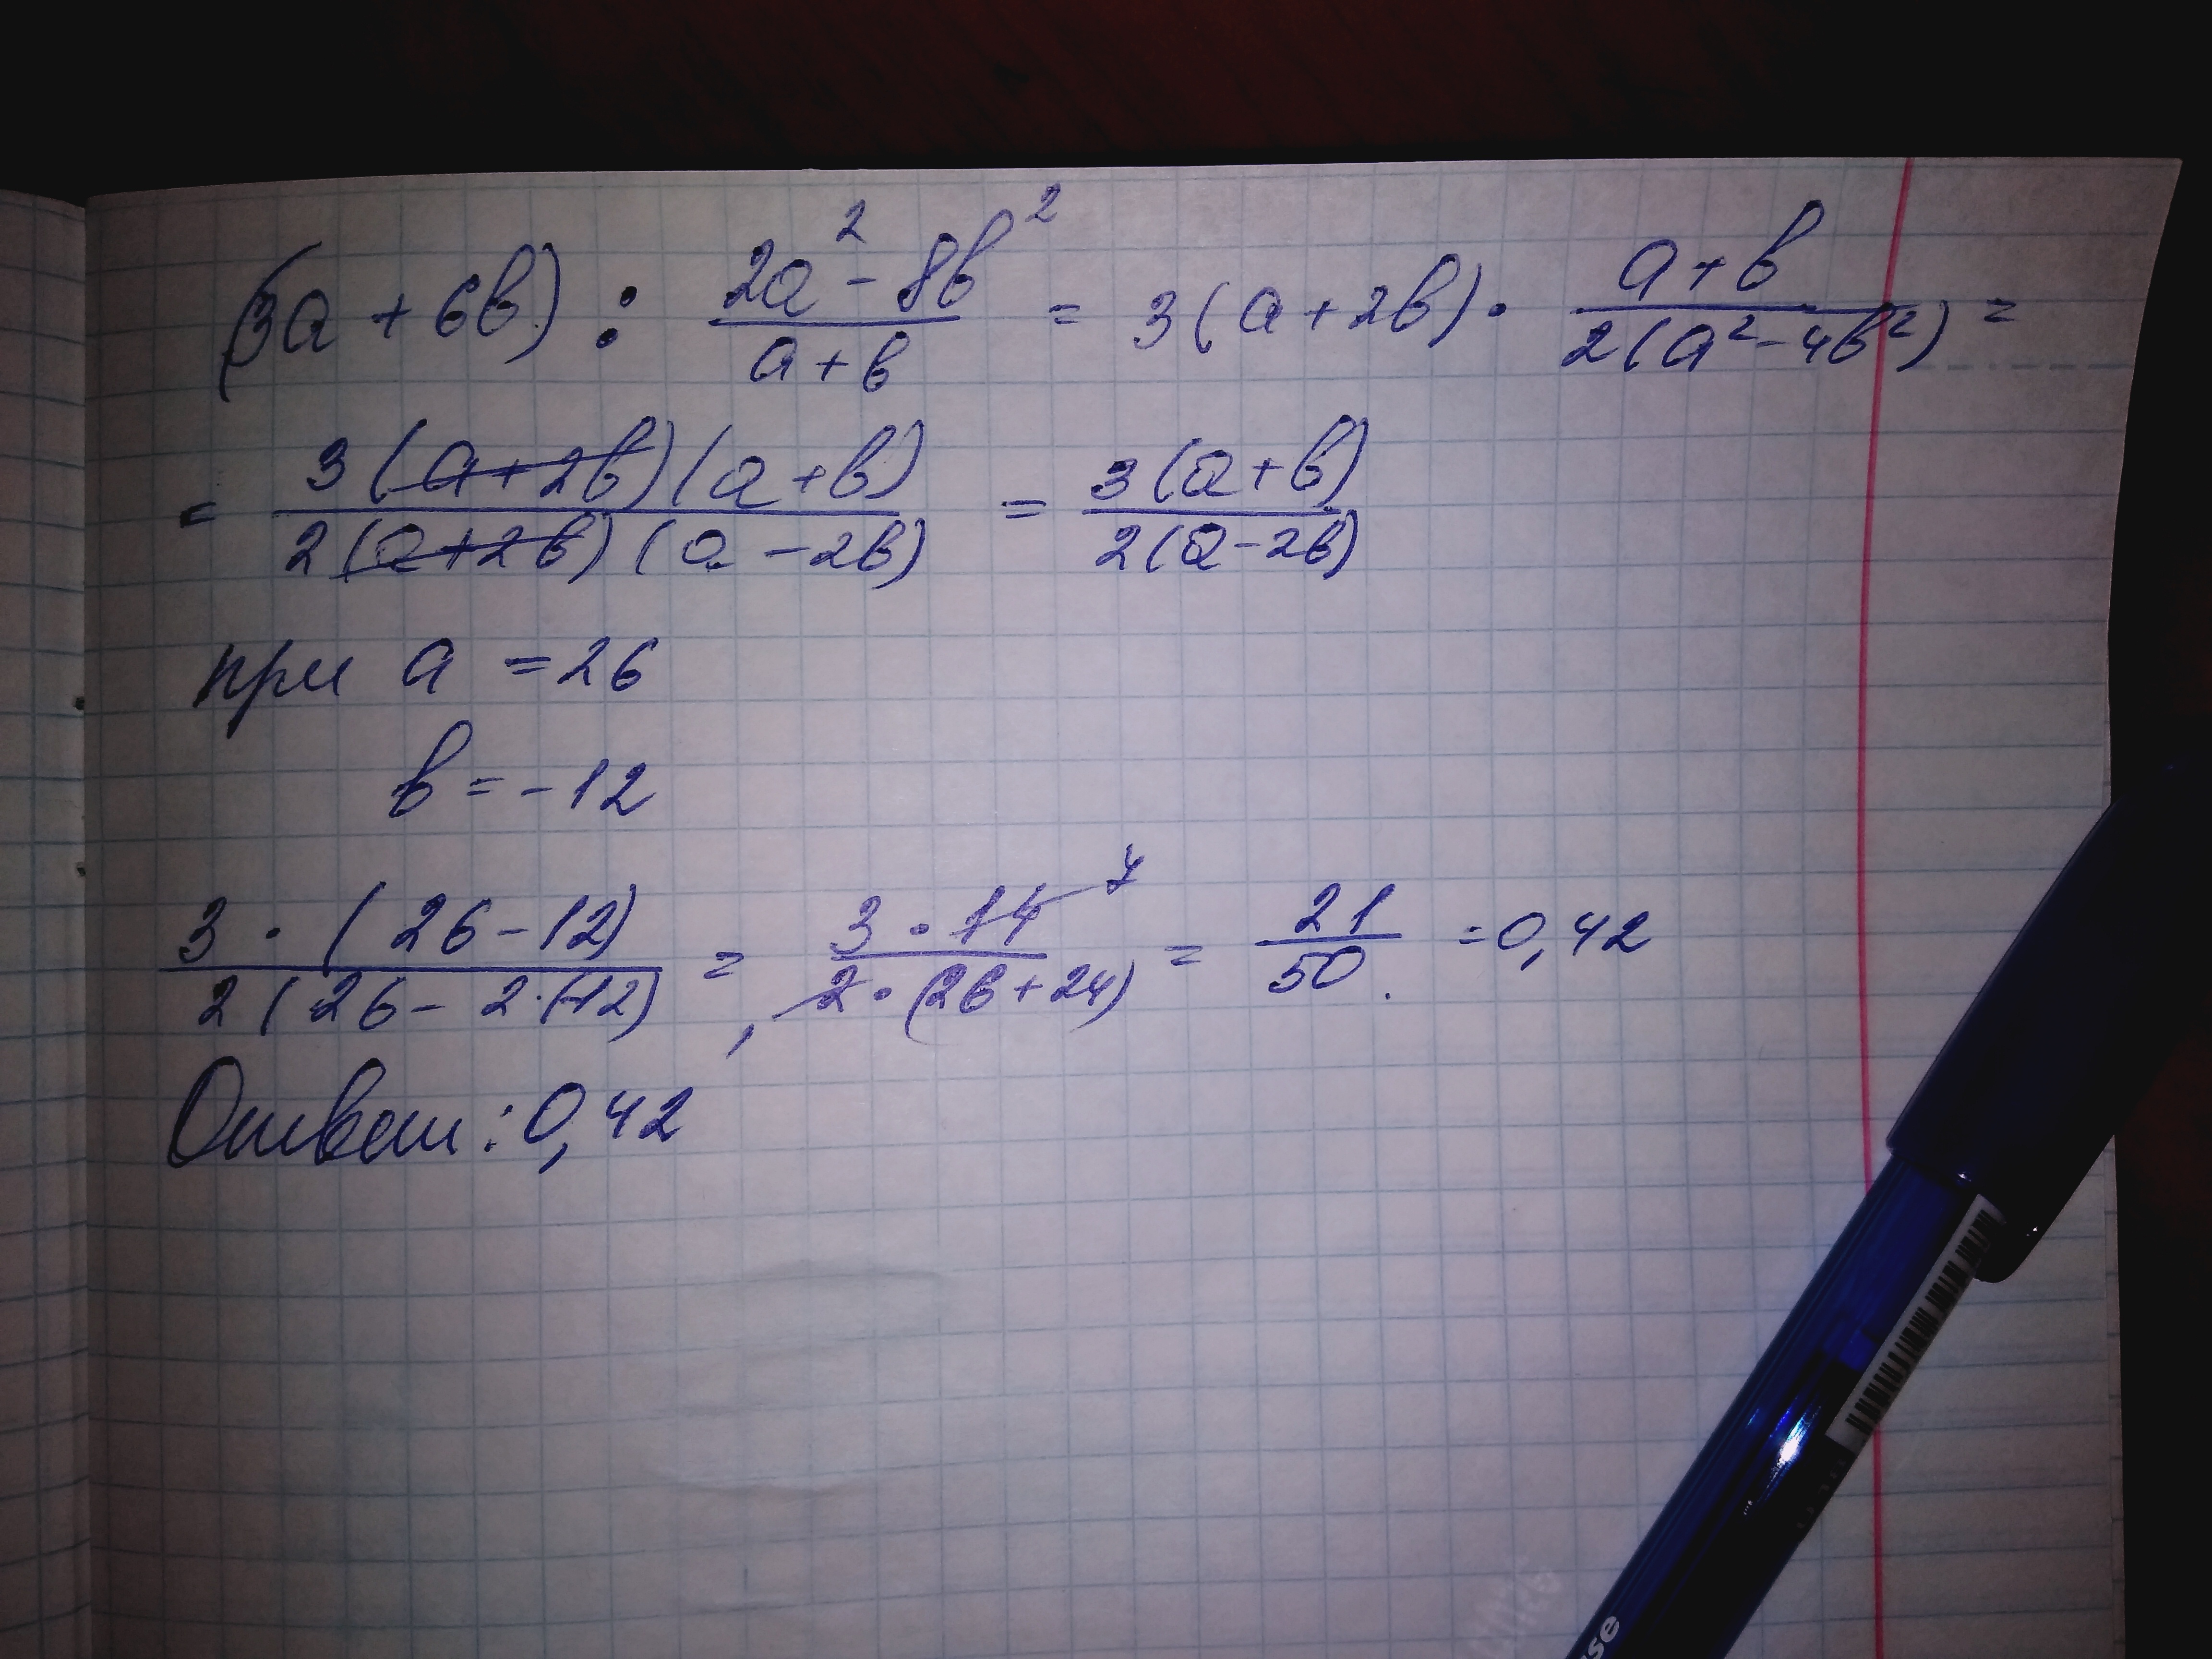 (3a + 6b) : (2a² - 8b²)/(a + b) = 3(a + 2b) · (a + b)/(2(a² - 4b²)) =
= (3(a + 2b)(a + b))/(2(a + 2b)(a - 2b)) = (3(a + b))/(2(a - 2b))
при a = 26
b = -12
(3 · (26 - 12))/(2(26 - 2·(-12)) = (3 · 14 7)/(2 · (26 + 24)) = 21/50 = 0,42
Ответ: 0,42
se